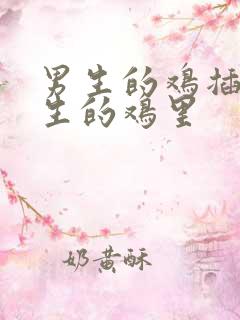 男生的鸡插
生的鸡里
奶黄酥